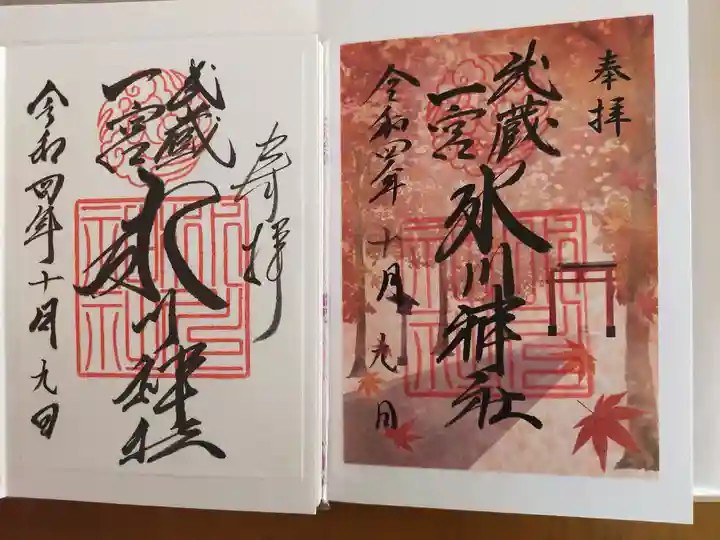 奉拝
武蔵
一宮
氷川神社
令和四年十月九日
奉拝
武蔵
一宮
氷川神社
令和四年十月九日